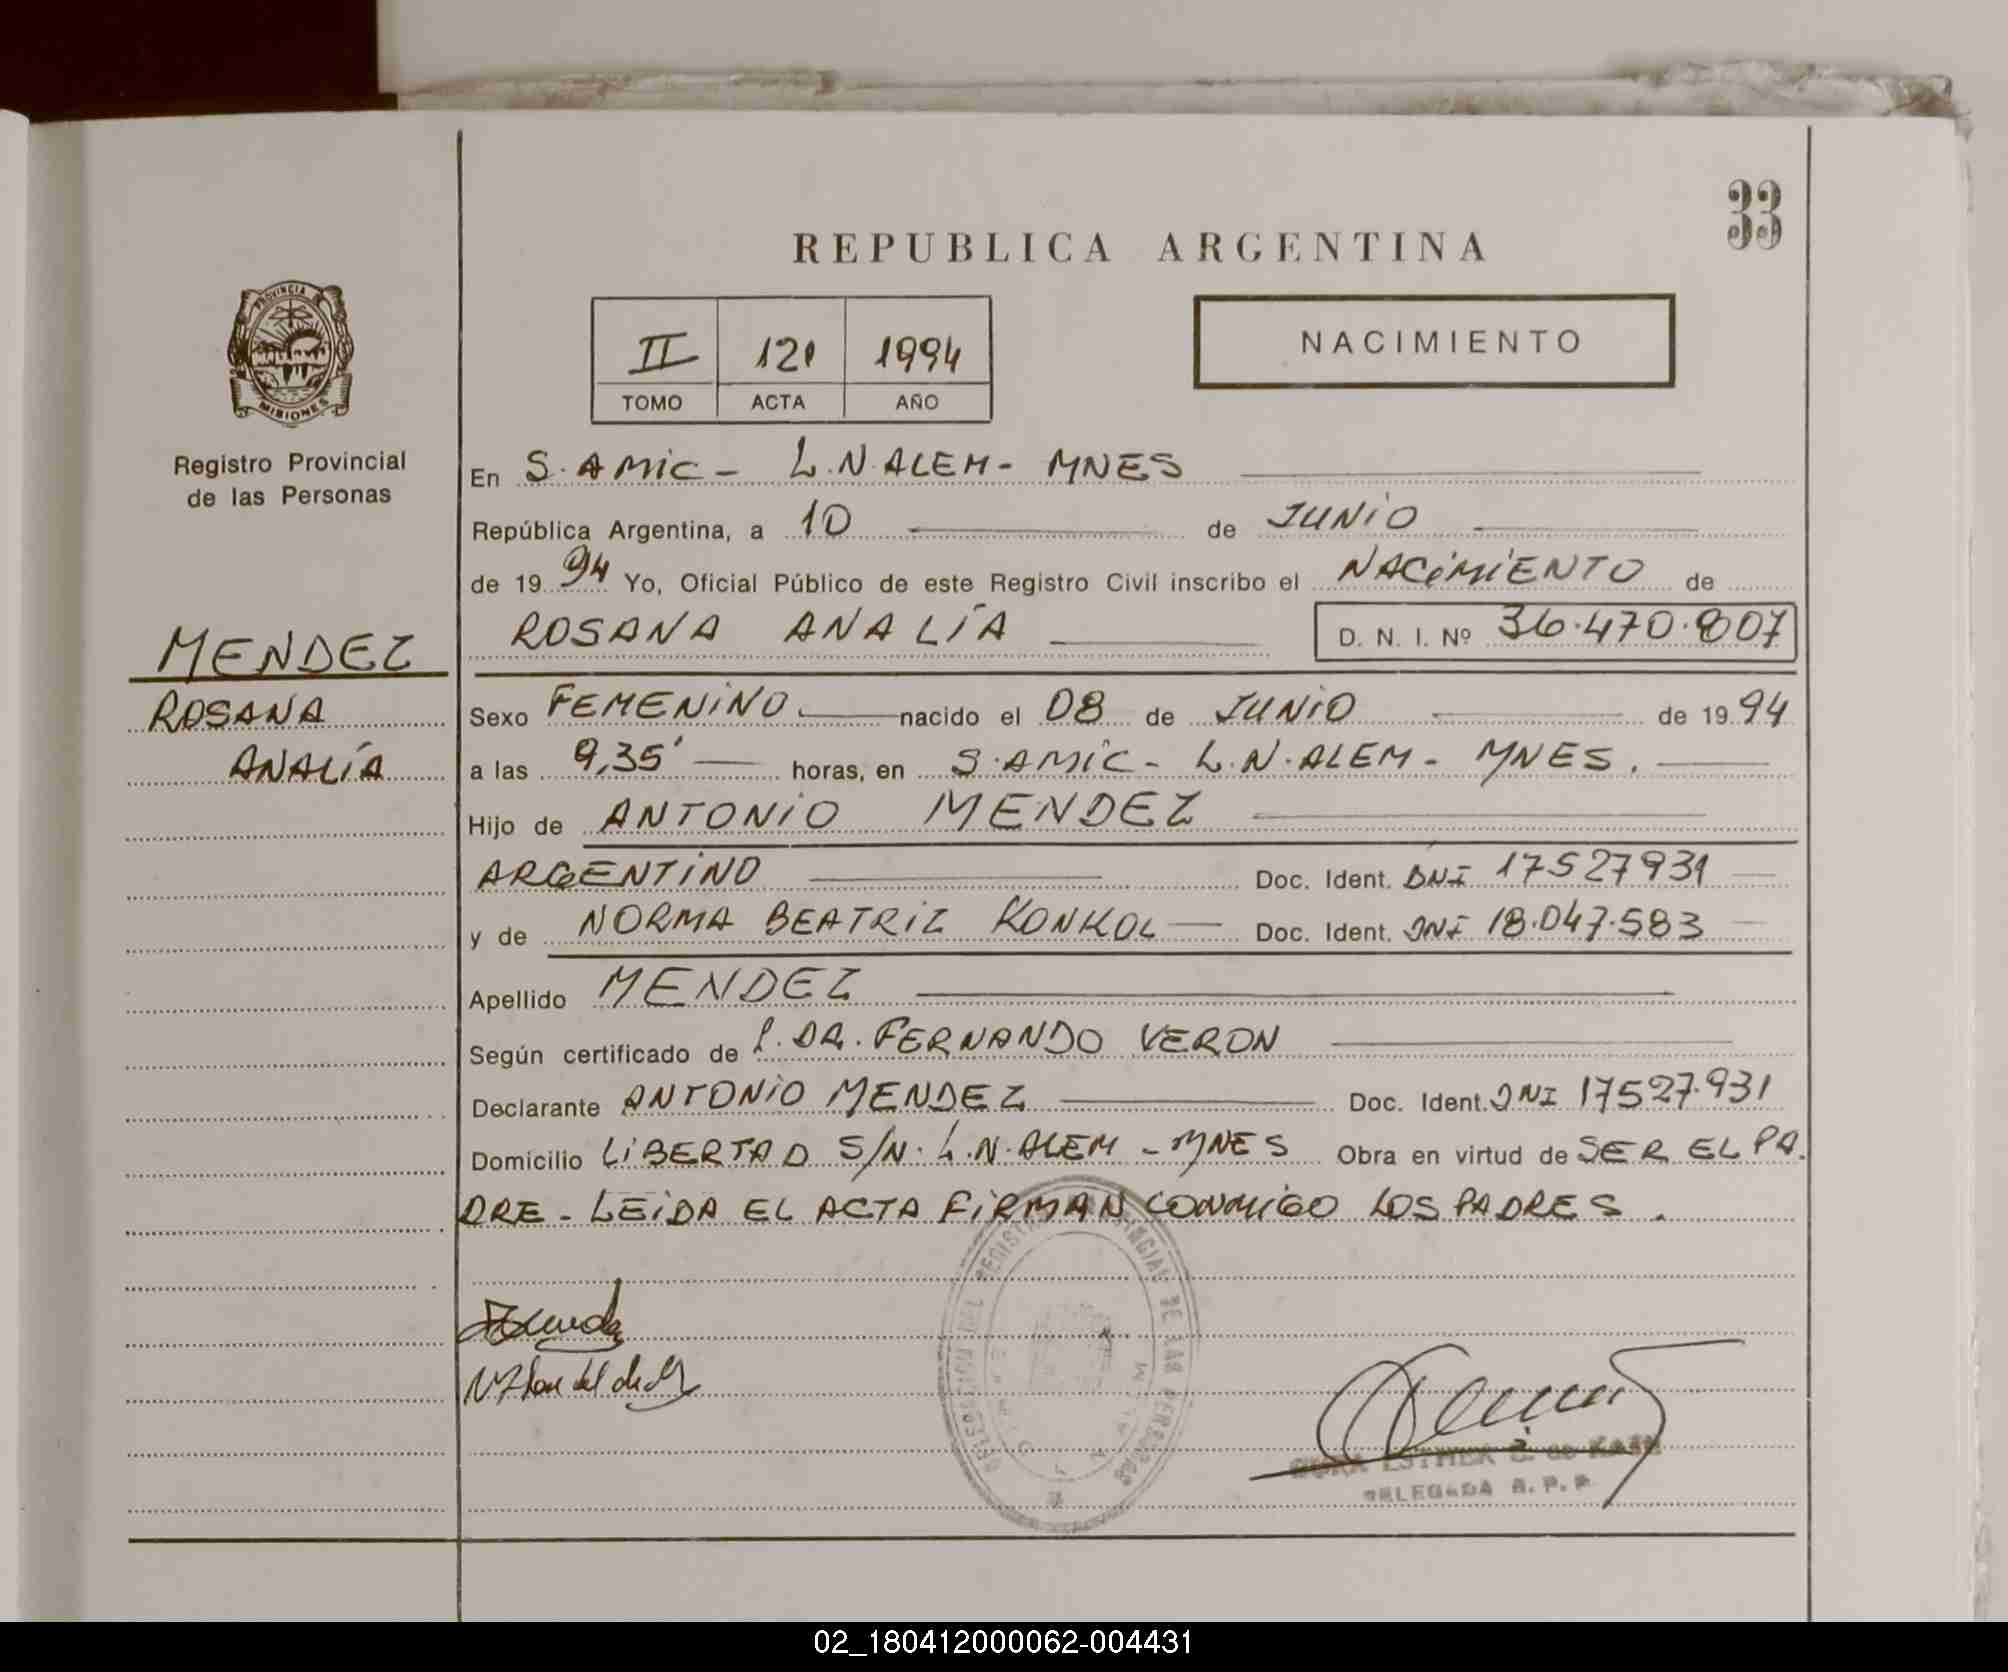 33
REPUBLICA ARGENTINA
II 121 1994
TOMO ACTA AÑO
NACIMIENTO
PROVINCIA DE
MISIONES
Registro Provincial
de las Personas
MENDEZ
ROSANA
ANALÍA
En S. AMIC - L.N. ALEM - MNES
República Argentina, a 10 de JUNIO
de 1994 Yo, Oficial Público de este Registro Civil inscribo el NACIMIENTO de
ROSANA ANALÍA D. N. I. Nº 36.470.807
Sexo FEMENINO nacido el 08 de JUNIO de 1994
a las 9,35' horas, en S. AMIC - L.N. ALEM - MNES.
Hijo de ANTONIO MENDEZ
ARGENTINO Doc. Ident. DNI 17527931
y de NORMA BEATRIZ KONKOL Doc. Ident. DNI 18.047.583
Apellido MENDEZ
Según certificado de DR. FERNANDO VERON
Declarante ANTONIO MENDEZ Doc. Ident. DNI 17527.931
Domicilio LIBERTAD S/N. L.N. ALEM - MNES Obra en virtud de SER EL PA.
DRE - LEIDA EL ACTA FIRMAN CONMIGO LOS PADRES.
DELEGACION DEL REGISTRO PROVINCIAL DE LAS PERSONAS
ESTHER de
DELEGADA R. P. P.
02_180412000062-004431